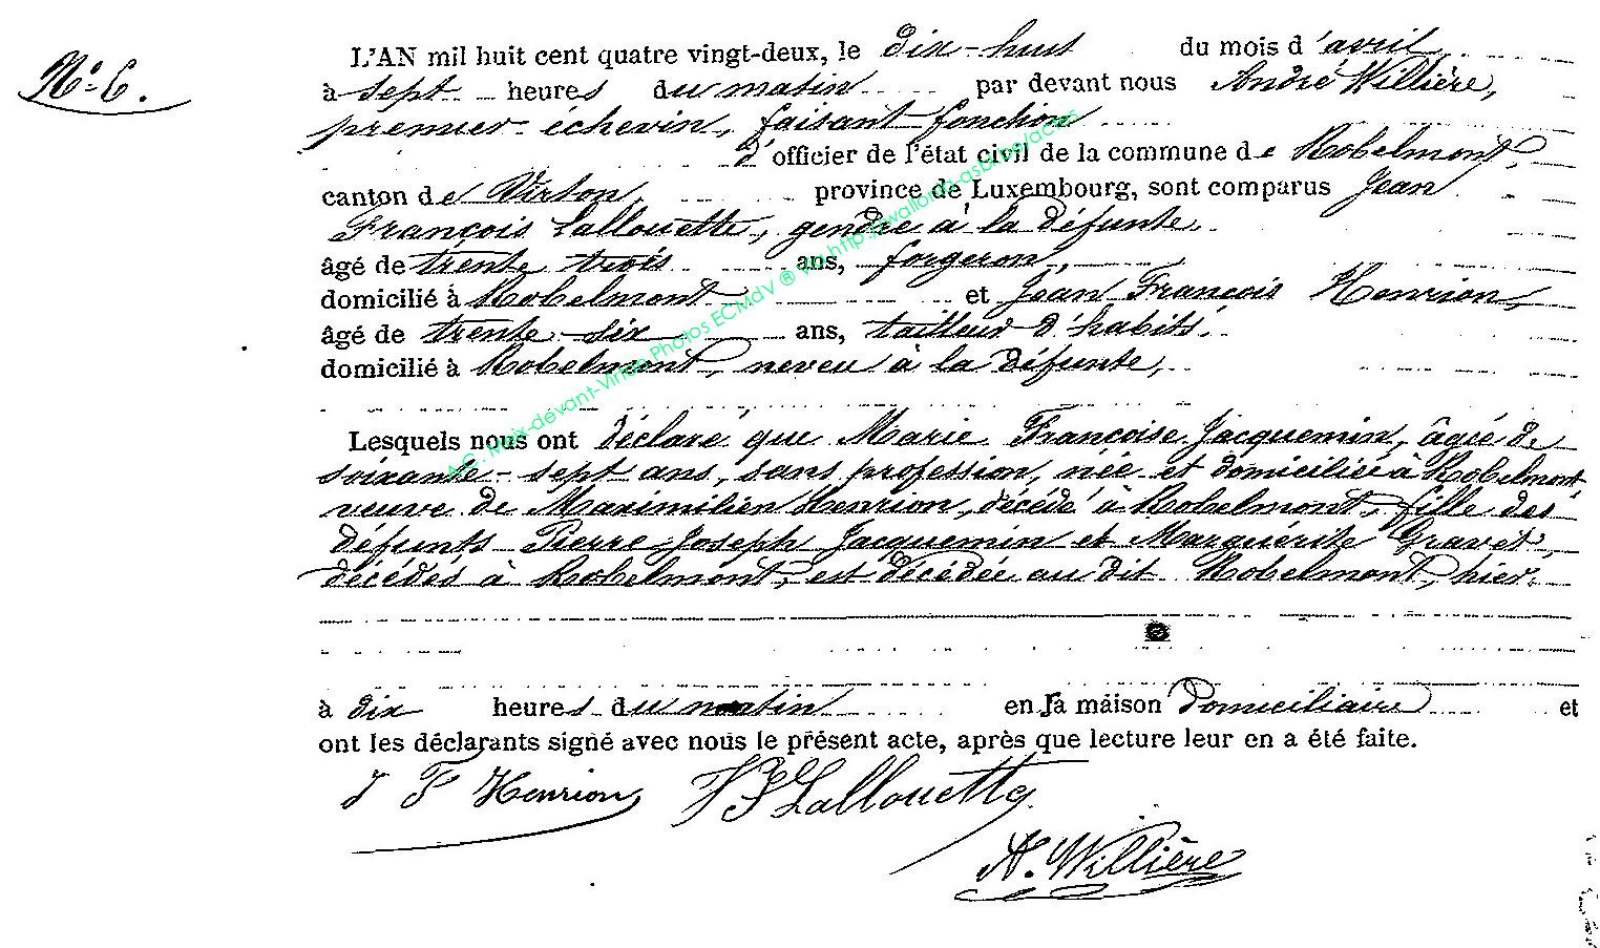 N° 6.
L'AN mil huit cent quatre vingt-deux, le dix-huit du mois d'avril
à sept heures du matin par devant nous André Willière,
premier échevin, faisant fonction
d'officier de l'état civil de la commune de Robelmont,
canton de Virton, province de Luxembourg, sont comparus Jean
François Lallouette, gendre à la défunte
âgé de trente trois ans, forgeron,
domicilié à Robelmont et Jean François Henrion,
âgé de trente-six ans, tailleur d'habits.
domicilié à Robelmont, neveu à la défunte,
Lesquels nous ont déclaré que Marie Françoise Jacquemin, âgée de
soixante-sept ans, sans profession, née et domiciliée à Robelmont
veuve de Maximilien Henrion, décédé à Robelmont, fille des
défunts Pierre-Joseph Jacquemin et Marguérite Gravet,
décédés à Robelmont, est décédée au dit Robelmont, hier
à dix heures du matin en sa maison Domiciliaire et
ont les déclarants signé avec nous le présent acte, après que lecture leur en a été faite.
J F Henrion JF Lallouette
A. Willière
A.C. Meix-devant-Virton Photos ECMdV ® via http://wallonia-asbl.be/actes